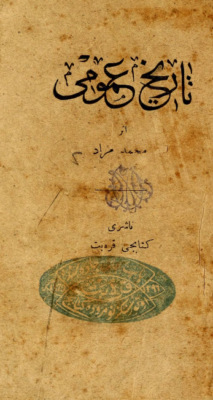 تاريخ عمومى
از
محمد مراد
ناشرى
كتابجى قره بت